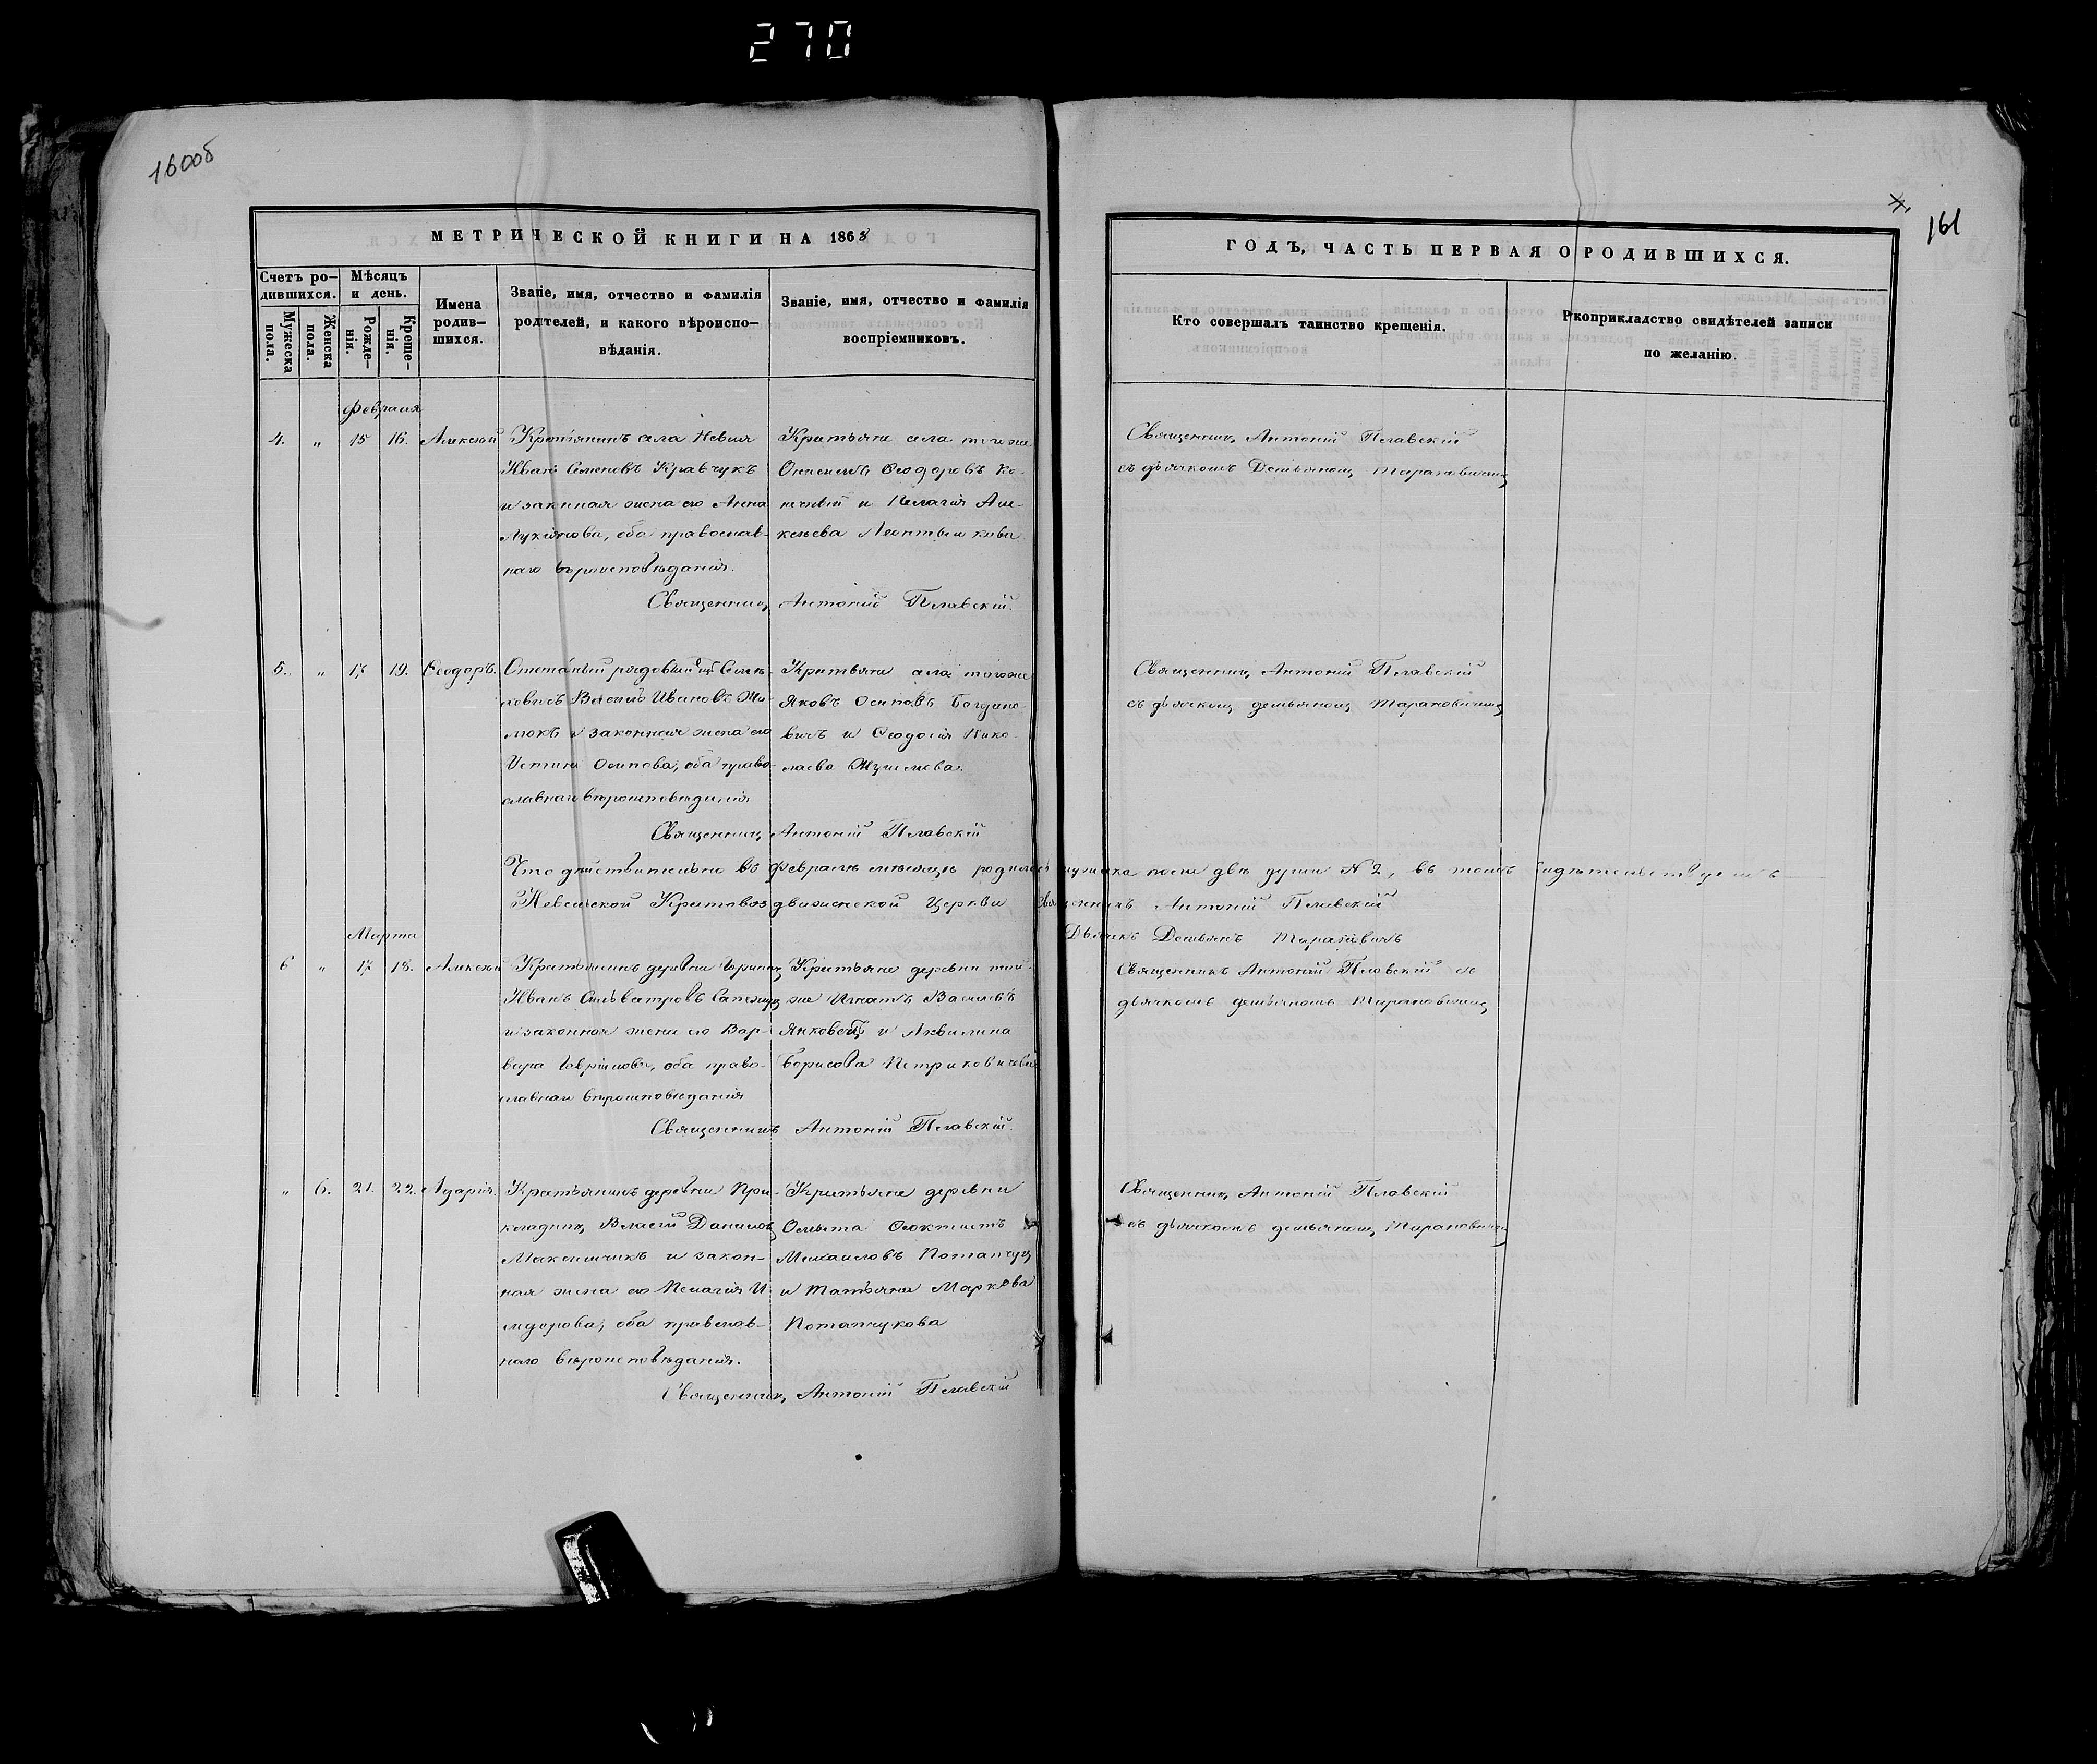 270
160об
161
МЕТРИЧЕСКОЙ КНИГИ НА 1868
Счетъ ро-
дившихся.
Мужеска
пола.
Женска
пола.
Мѣсяцъ
и день.
Рожде-
нія.
Креще-
нія.
Имена
родив-
шихся.
Званіе, имя, отчество и фамилія
родителей, и какого вѣроиспо-
вѣданія.
Званіе, имя, отчество и фамилія
воспріемниковъ.
Февраля
4. „ 15 16. Алексѣй
Крестьянинъ села
Иванъ Семеновъ Кравчукъ
и законная жена его Анна
Лукіянова, оба православ-
наго вѣроисповѣданія.
Крестьяне села того же
Онисимъ Ѳеодоровъ Ко-
и Пелагія Але-
ксѣева
Священникъ Антоній Плавскій.
5. „ 17 19. Ѳеодоръ.
рядовый
Василій Ивановъ
и законная жена его
Осипова, оба право-
славнаго вѣроисповѣданія
Крестьяне села того же
Яковъ Осиповъ Богдано-
вичъ и Ѳеодосія Нико-
лаева
Священникъ Антоній Плавскій
Что дѣйствительно въ Февралѣ мѣсяцѣ родилось мужеска пола двѣ души № 2, въ томъ свидѣтельствуемъ
Крестовоздвиженской Церкви Священникъ Антоній Плавскій
Дьячекъ Демьянъ Тарановичъ
Марта
6 „ 17 18. Алексѣй
Крестьянинъ деревни
Иванъ Сильвестровъ
и законная жена его Вар-
вара оба право-
славнаго вѣроисповѣданія
Крестьяне деревни той
же Игнатъ Васильевъ
и Акилина
Борисова
Священникъ Антоній Плавскій.
„ 6. 21. 22. Дарія.
Крестьянинъ деревни При-
кладникъ Власій Даниловъ
и закон-
ная жена его Пелагія И-
сидорова, оба православ-
наго вѣроисповѣданія.
Крестьяне деревни
Осмыта Ѳеоктистъ
Михаиловъ Потапчукъ
и Татьяна Маркова
Потапчукова
Священникъ Антоній Плавскій
ГОДЪ, ЧАСТЬ ПЕРВАЯ О РОДИВШИХСЯ.
Кто совершалъ таинство крещенія.
Ркоприкладство свидѣтелей записи
по желанію.
Священникъ Антоній Плавскій
съ дьячкомъ Демьяномъ Тарановичемъ
Священникъ Антоній Плавскій
съ дьячкомъ Демьяномъ Тарановичемъ
Священникъ Антоній Плавскій съ
дьячкомъ Демьяномъ Тарановичемъ
Священникъ Антоній Плавскій
съ дьячкомъ Демьяномъ Тарановичемъ